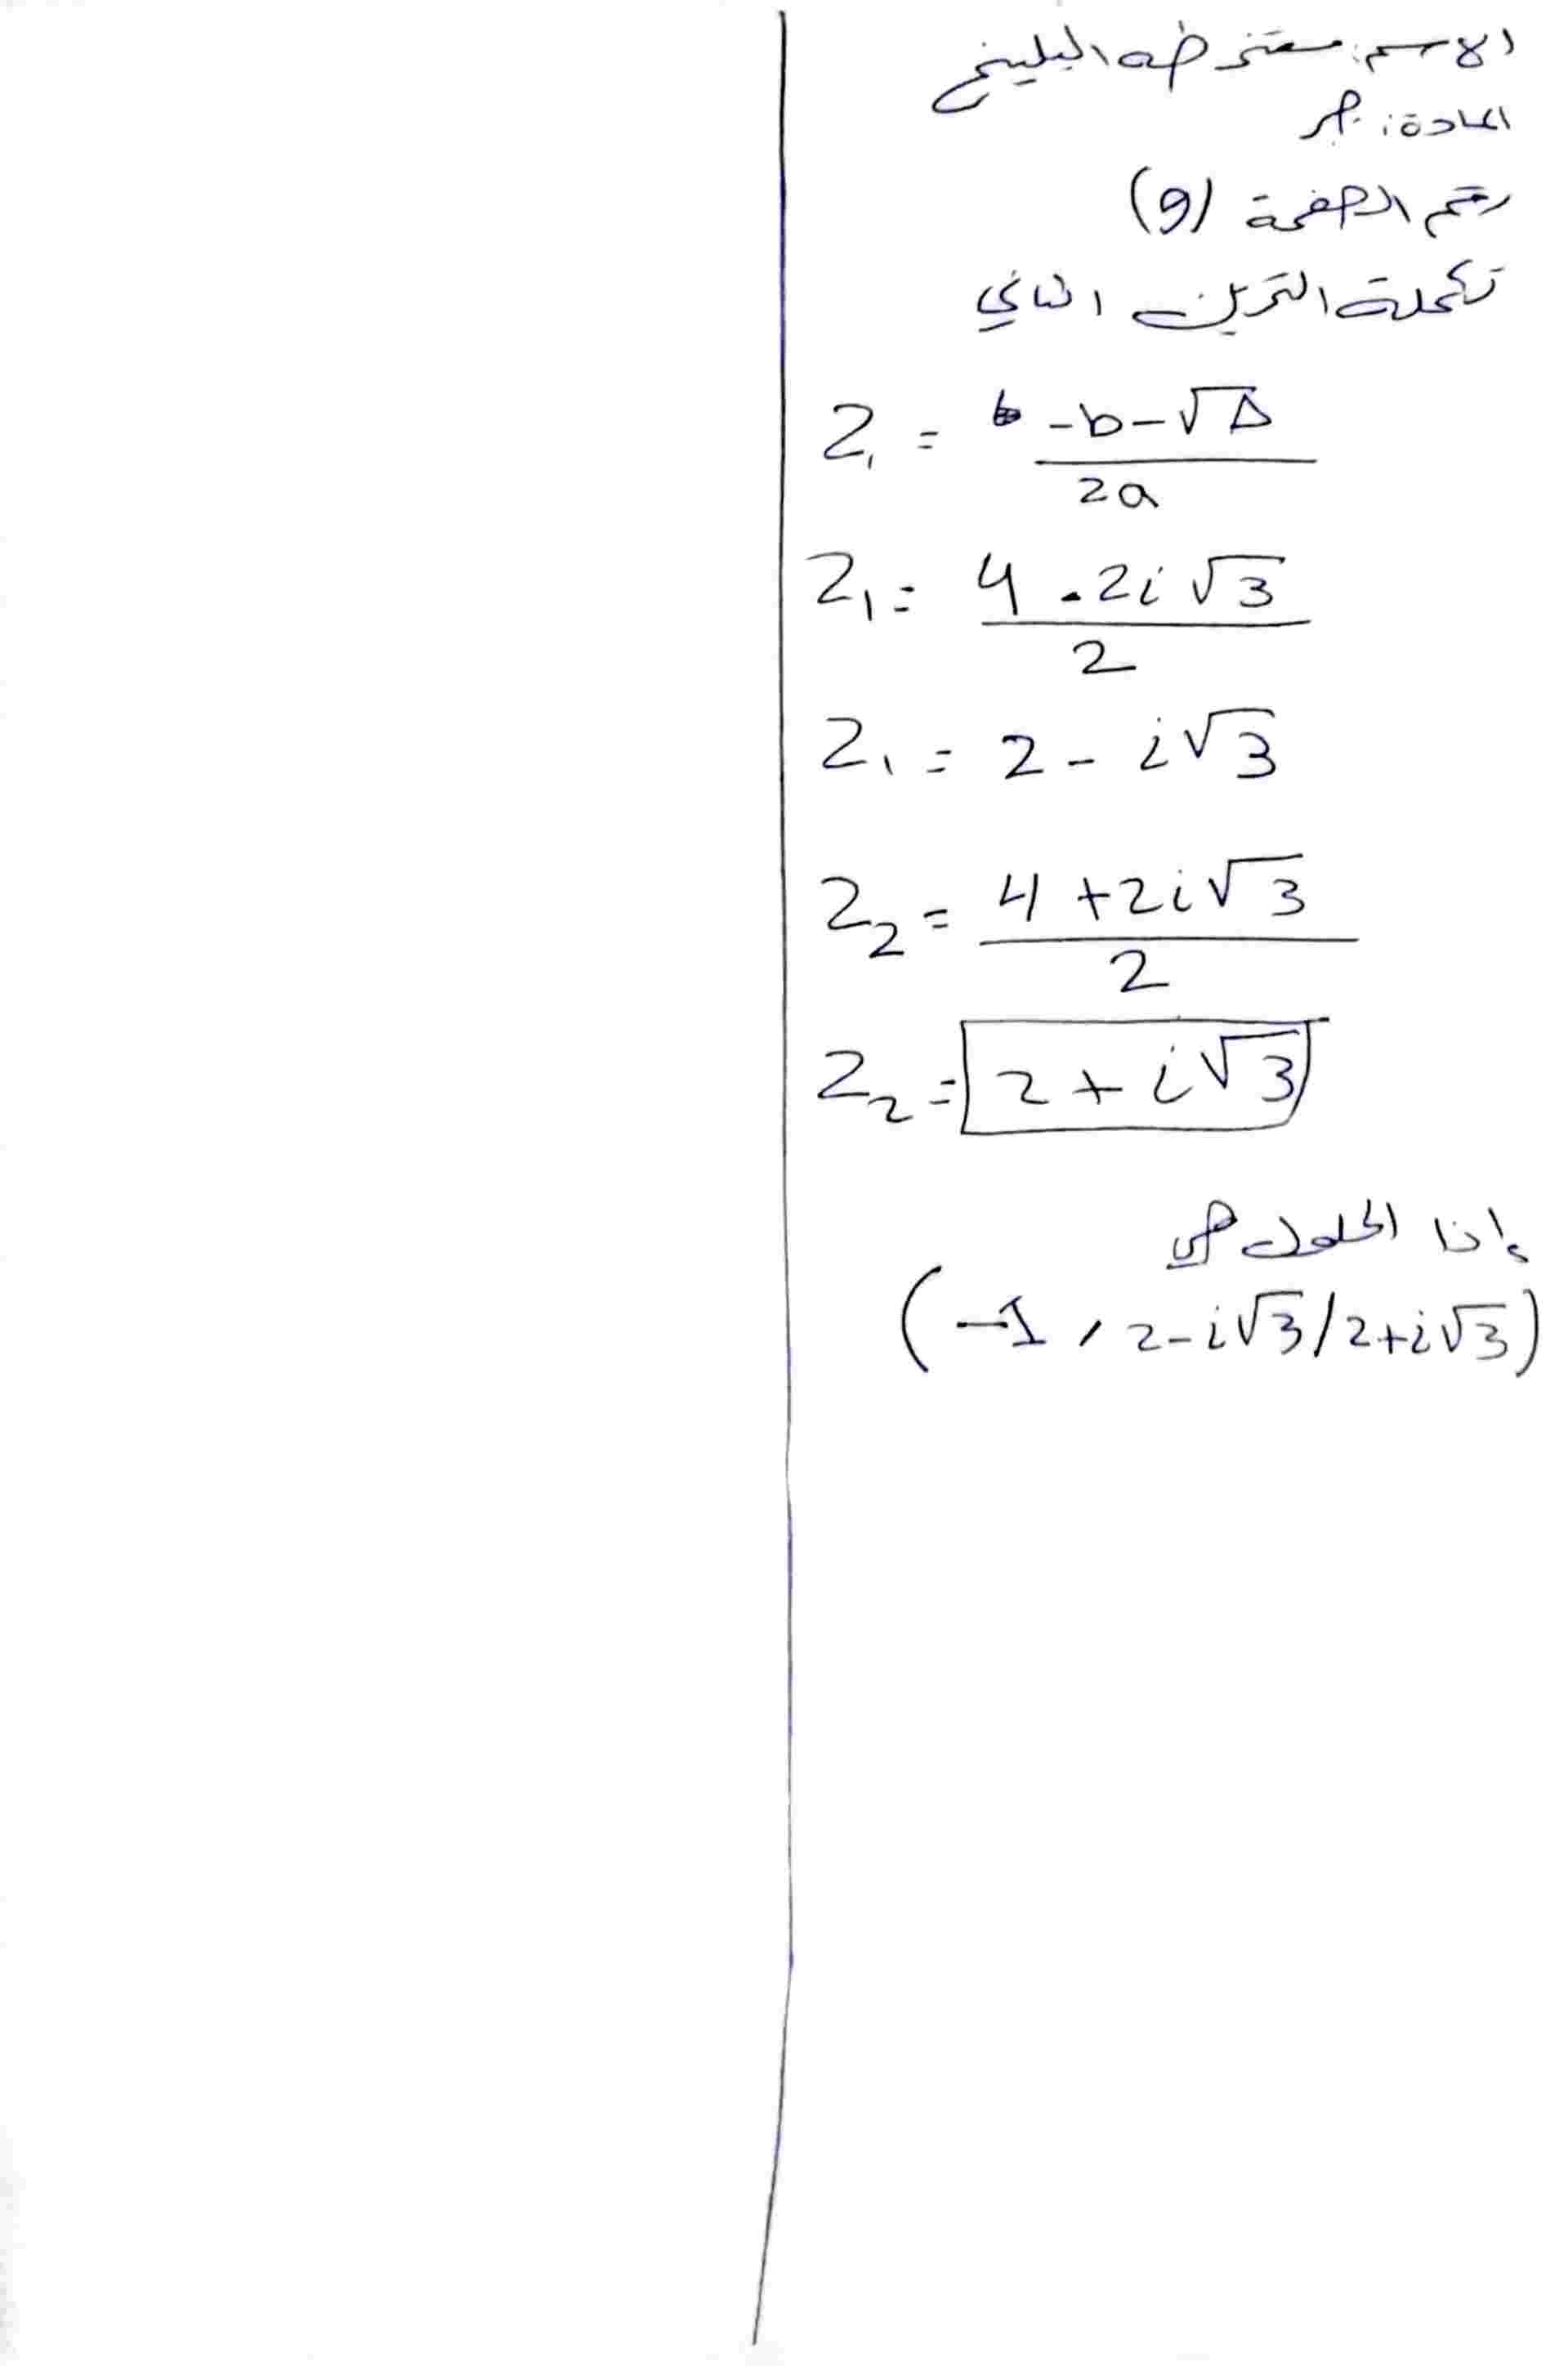 الاسم: معتز طه البليخ
المادة: جبر
رقم الصفحة (9)
تكملة التمرين الثاني
Z₁ = -b-√Δ / 2a
Z₁ = 4 - 2i√3 / 2
Z₁ = 2 - i√3
Z₂ = 4 + 2i√3 / 2
Z₂ = 2 + i√3
إذا الحلول هي
(-1 , 2-i√3 / 2+i√3)